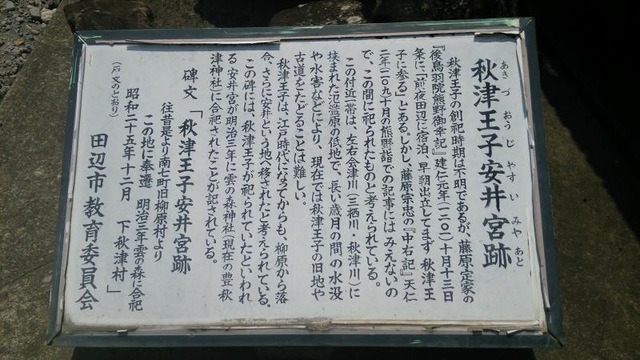 秋津王子安井宮跡
あき づ おう じ やす い みや あと
秋津王子の創祀時期は不明であるが、藤原定家の
『後鳥羽院熊野御幸記』建仁元年(一二〇一)十月十三日
条に、「前夜田辺に宿泊、早朝出立してます 秋津王
子に参る」とある。しかし、藤原宗忠の『中右記』天仁
二年(一一〇九)十月の熊野詣での記事にはみえないの
で、この間に祀られたものと考えられている。
この付近一帯は、左右会津川(三栖川・秋津川)に
挟まれた氾濫原の低地で、長い歳月の間の水没
や水害などにより、現在では秋津王子の旧地や
古道をたどることは難しい。
秋津王子は、江戸時代になってからも、柳原から落
合、さらに安井という地へ移されたと考えられている。
この碑には、秋津王子が祀られていたといわれ
る安井宮が明治三年に雲の森神社(現在の豊秋
津神社)に合祀されたことが記されている。
碑文「秋津王子安井宮跡
往昔是より南七町旧柳原村より
この地に奉遷 明治三年雲の森に合祀
昭和二十五年十二月 下秋津村」
(戸 文のとおり)
田辺市教育委員会